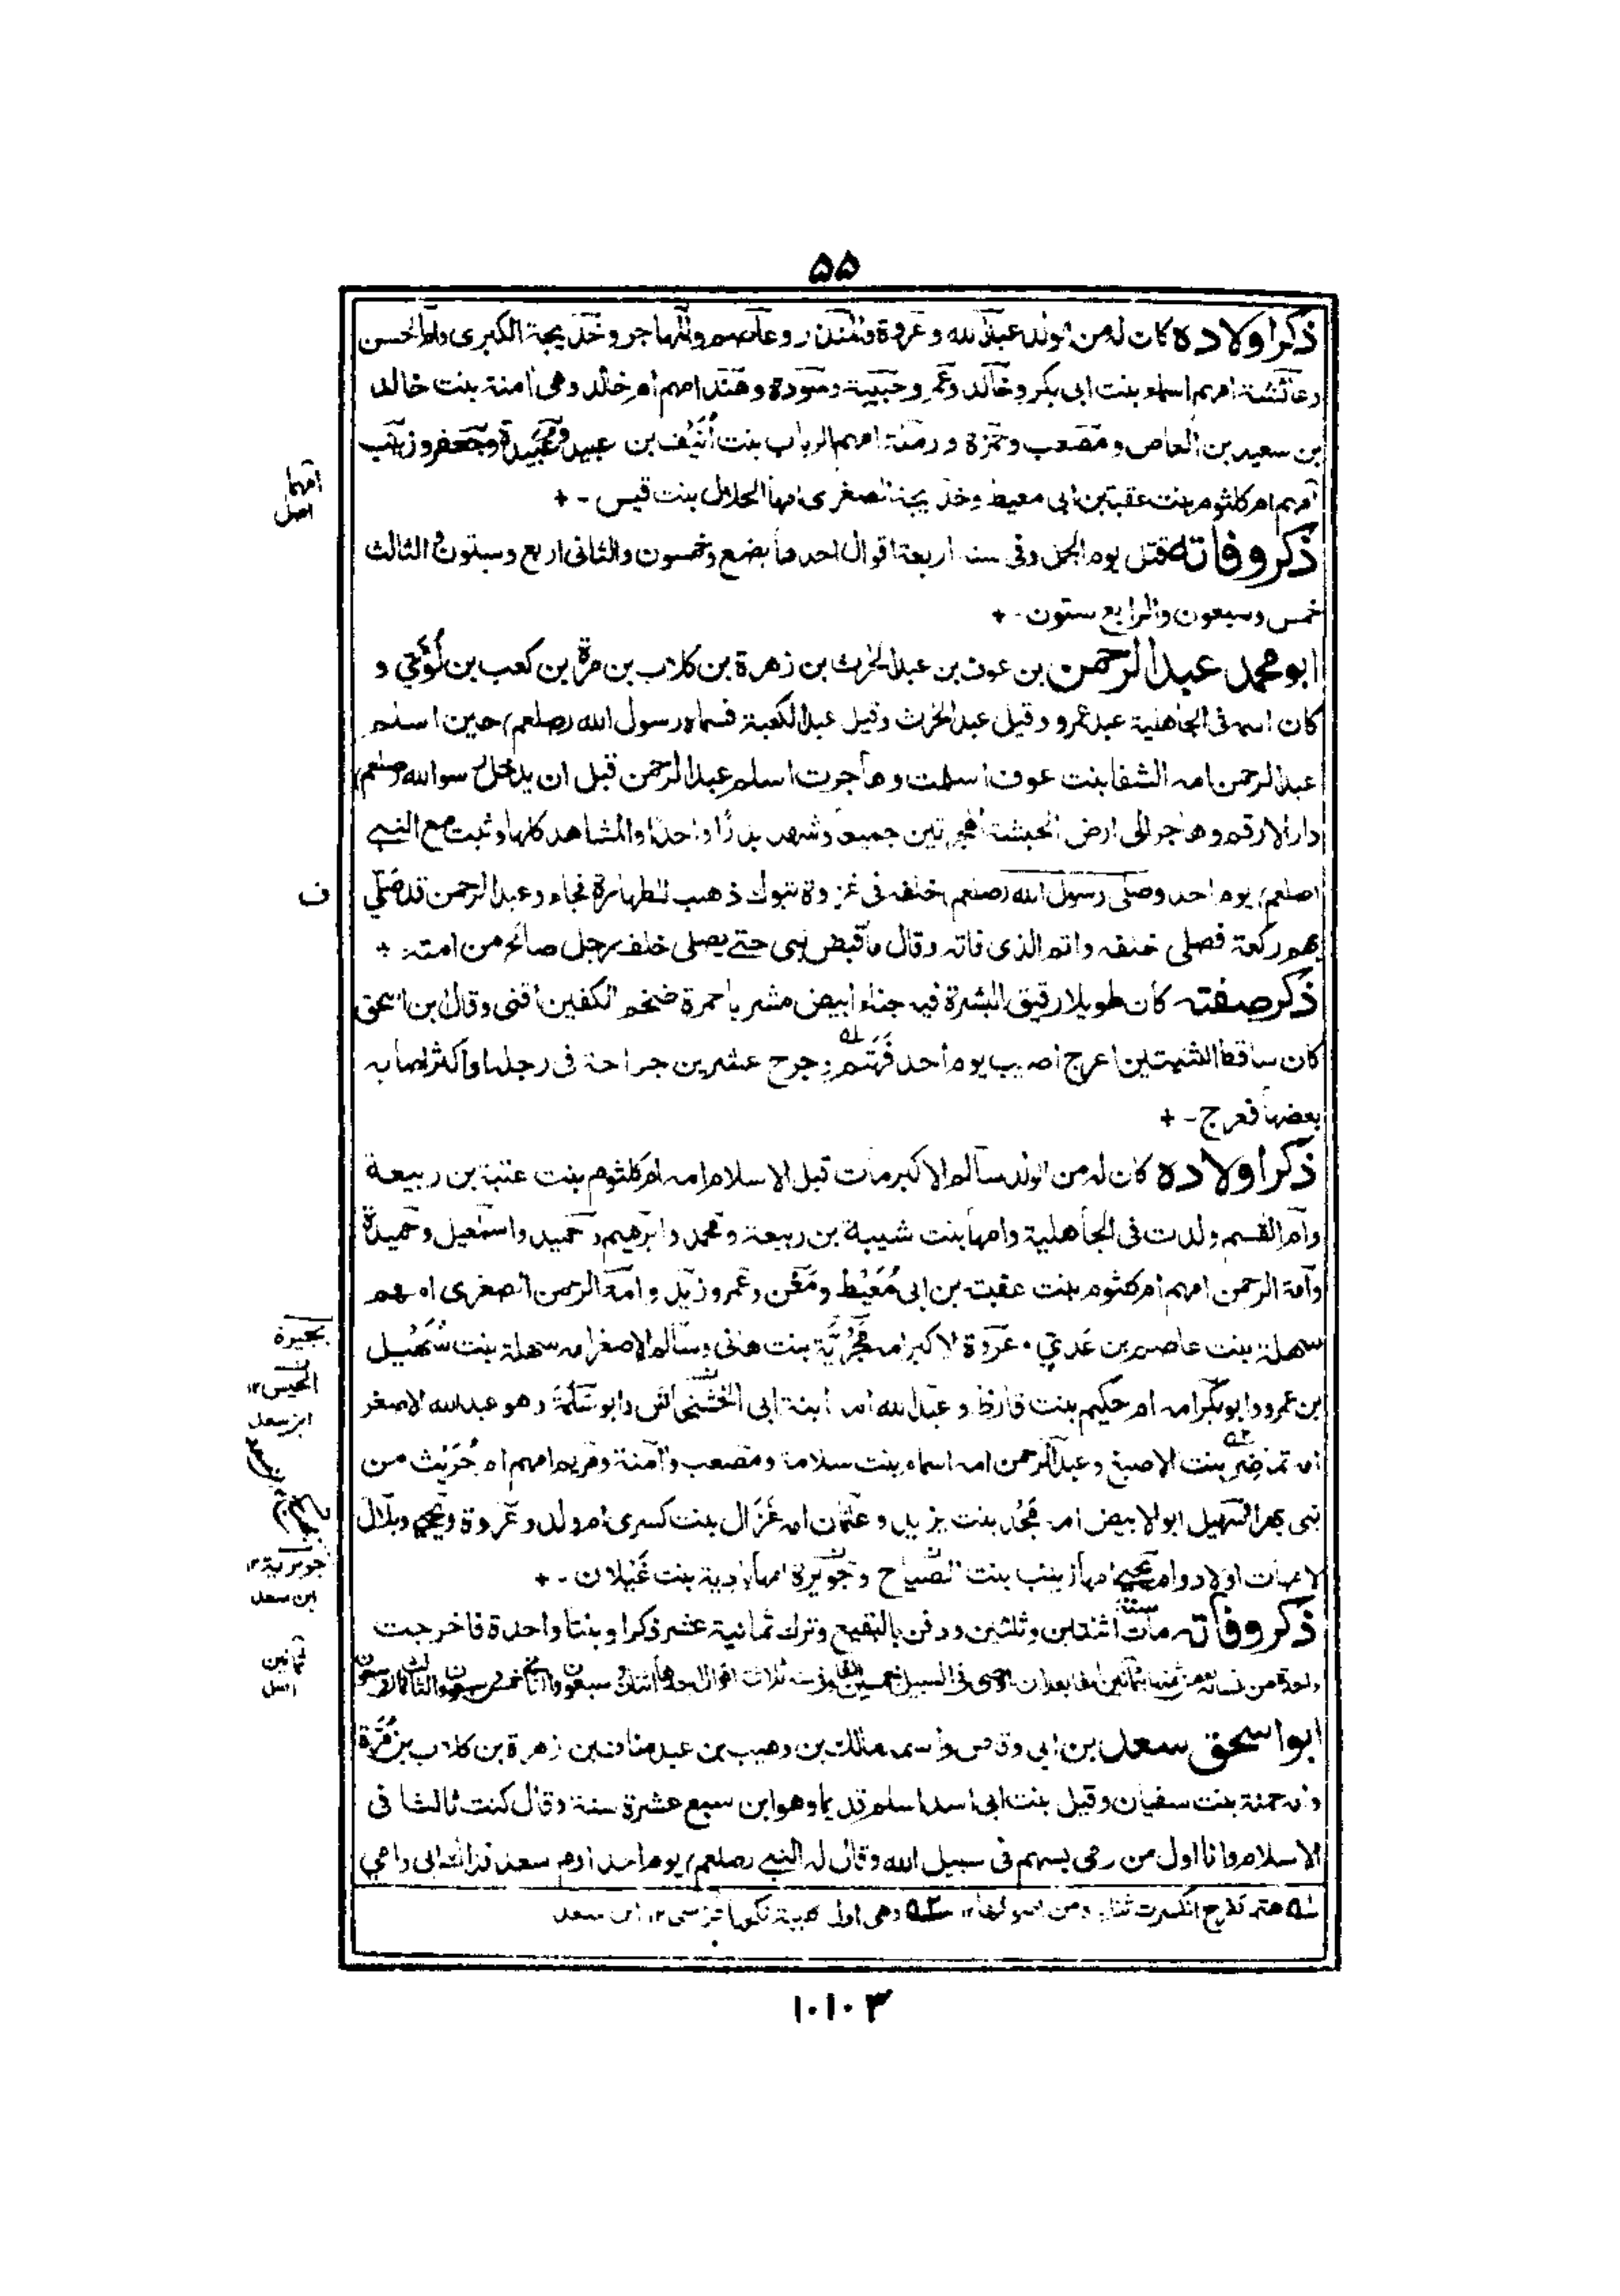 ۵۵
ذكر اولاده كان له من الولد عبد الله وعروة والمنذر وعاصم والمهاجر وخديجة الكبرى وام الحسن
وعائشة امهم اسماء بنت ابى بكر وخالد وعمر وحبيبة وسودة وهند امهم ام خالد وهى امنة بنت خالد
بن سعيد بن العاص ومصعب وحمزة ورملة امهم الرباب بنت أنيف بن عبيد وعبيدة وجعفر وزينب
امهم ام كلثوم بنت عقبة بن ابى معيط وخديجة الصغرى امها الحلال بنت قيس - +
ذكر وفاته قتل يوم الجمل وفى سنه اربعة اقوال احدها بضع وخمسون والثانى اربع وستون والثالث
خمس وسبعون والرابع ستون - +
ابو محمد عبد الرحمن بن عوف بن عبد الحرث بن زهرة بن كلاب بن مرة بن كعب بن لؤي و
كان اسمه فى الجاهلية عبد عمرو وقيل عبد الحرث وقيل عبد الكعبة فسماه رسول الله (صلعم) حين اسلم
عبد الرحمن امه الشفا بنت عوف اسلمت وهاجرت اسلم عبد الرحمن قبل ان يدخل رسول الله (صلعم)
دار الارقم وهاجر الى ارض الحبشة الهجرتين جميعا وشهد بدرًا واحدًا والمشاهد كلها وثبت مع النبى
(صلعم) يوم احد وصلى رسول الله (صلعم) خلفه فى غزوة تبوك ذهب للطهارة فجاء وعبد الرحمن قد صلى
بهم ركعة فصلى خلفه واتم الذى فاته وقال ما قبض نبى حتى يصلى خلف رجل صالح من امته +
ذكر صفته كان طويلا رقيق البشرة فيه جناء ابيض مشربا حمرة ضخم الكفين اقنى وقال بن اسحق
كان ساقط الثنيتين اعرج اصيب يوم أحد فهتم وجرح عشرين جراحة فى رجله او اكثر اصابه
بعضها فعرج - +
ذكر اولاده كان له من الولد سالم الاكبر مات قبل الاسلام امه ام كلثوم بنت عتبة بن ربيعة
وام القسم ولدت فى الجاهلية وامها بنت شيبة بن ربيعة ومحمد وابرهيم وحميد واسمعيل وحميدة
وامة الرحمن امهم ام كلثوم بنت عقبة بن ابى مُعَيْط ومعن وعمر وزيد وامة الرحمن الصغرى امهم
سهلة بنت عاصم بن عَدي وعروة الاكبر امه بَحْرِيَّة بنت هانى وسالم الاصغر امه سهلة بنت سُهَيل
بن عمرو وابو بكر امه ام حكيم بنت قارظ وعبد الله امه ابنة ابى الخشخاش وابو سلمة وهو عبد الله الاصغر
امه تماضر بنت الاصبغ وعبد الرحمن امه اسماء بنت سلامة ومصعب وآمنة ومريم امهم ام حُرَيْث من
بنى بهرا وسهيل ابو الابيض امه مجد بنت يزيد وعثمان امه غزال بنت كسرى ام ولد وعروة ويحيى وبلال
لامهات اولاد وام يحيى امها زينب بنت الصباح وجويرة امها بادية بنت غيلان - +
ذكر وفاته مات سنة اثنتين وثلثين ودفن بالبقيع وترك ثمانية عشر ذكرا وبنتا واحدة فاخرجت
ابو اسحق سعد بن ابى وقاص واسمه مالك بن وهيب بن عبد مناف بن زهرة بن كلاب بن مُرَّة
وامه حمنة بنت سفيان وقيل بنت ابى اسد اسلم قديما وهو ابن سبع عشرة سنة وقال كنت ثالثا فى
الاسلام وانا اول من رمى بسهم فى سبيل الله وقال له النبى (صلعم) يوم احد ارم سعد فداك ابى وامي
له هتم كفرح انكسرت ثناياه من اصولها ۱۲ ۲ه وهى اول كلبية نكحها قرشى ۱۲ ابن سعد
امهما
اصل
ف
بحيرة
ابن سعد
جويرية ۱۲
ابن سعد
ثمانين
اصل
۱۰۱۰۳